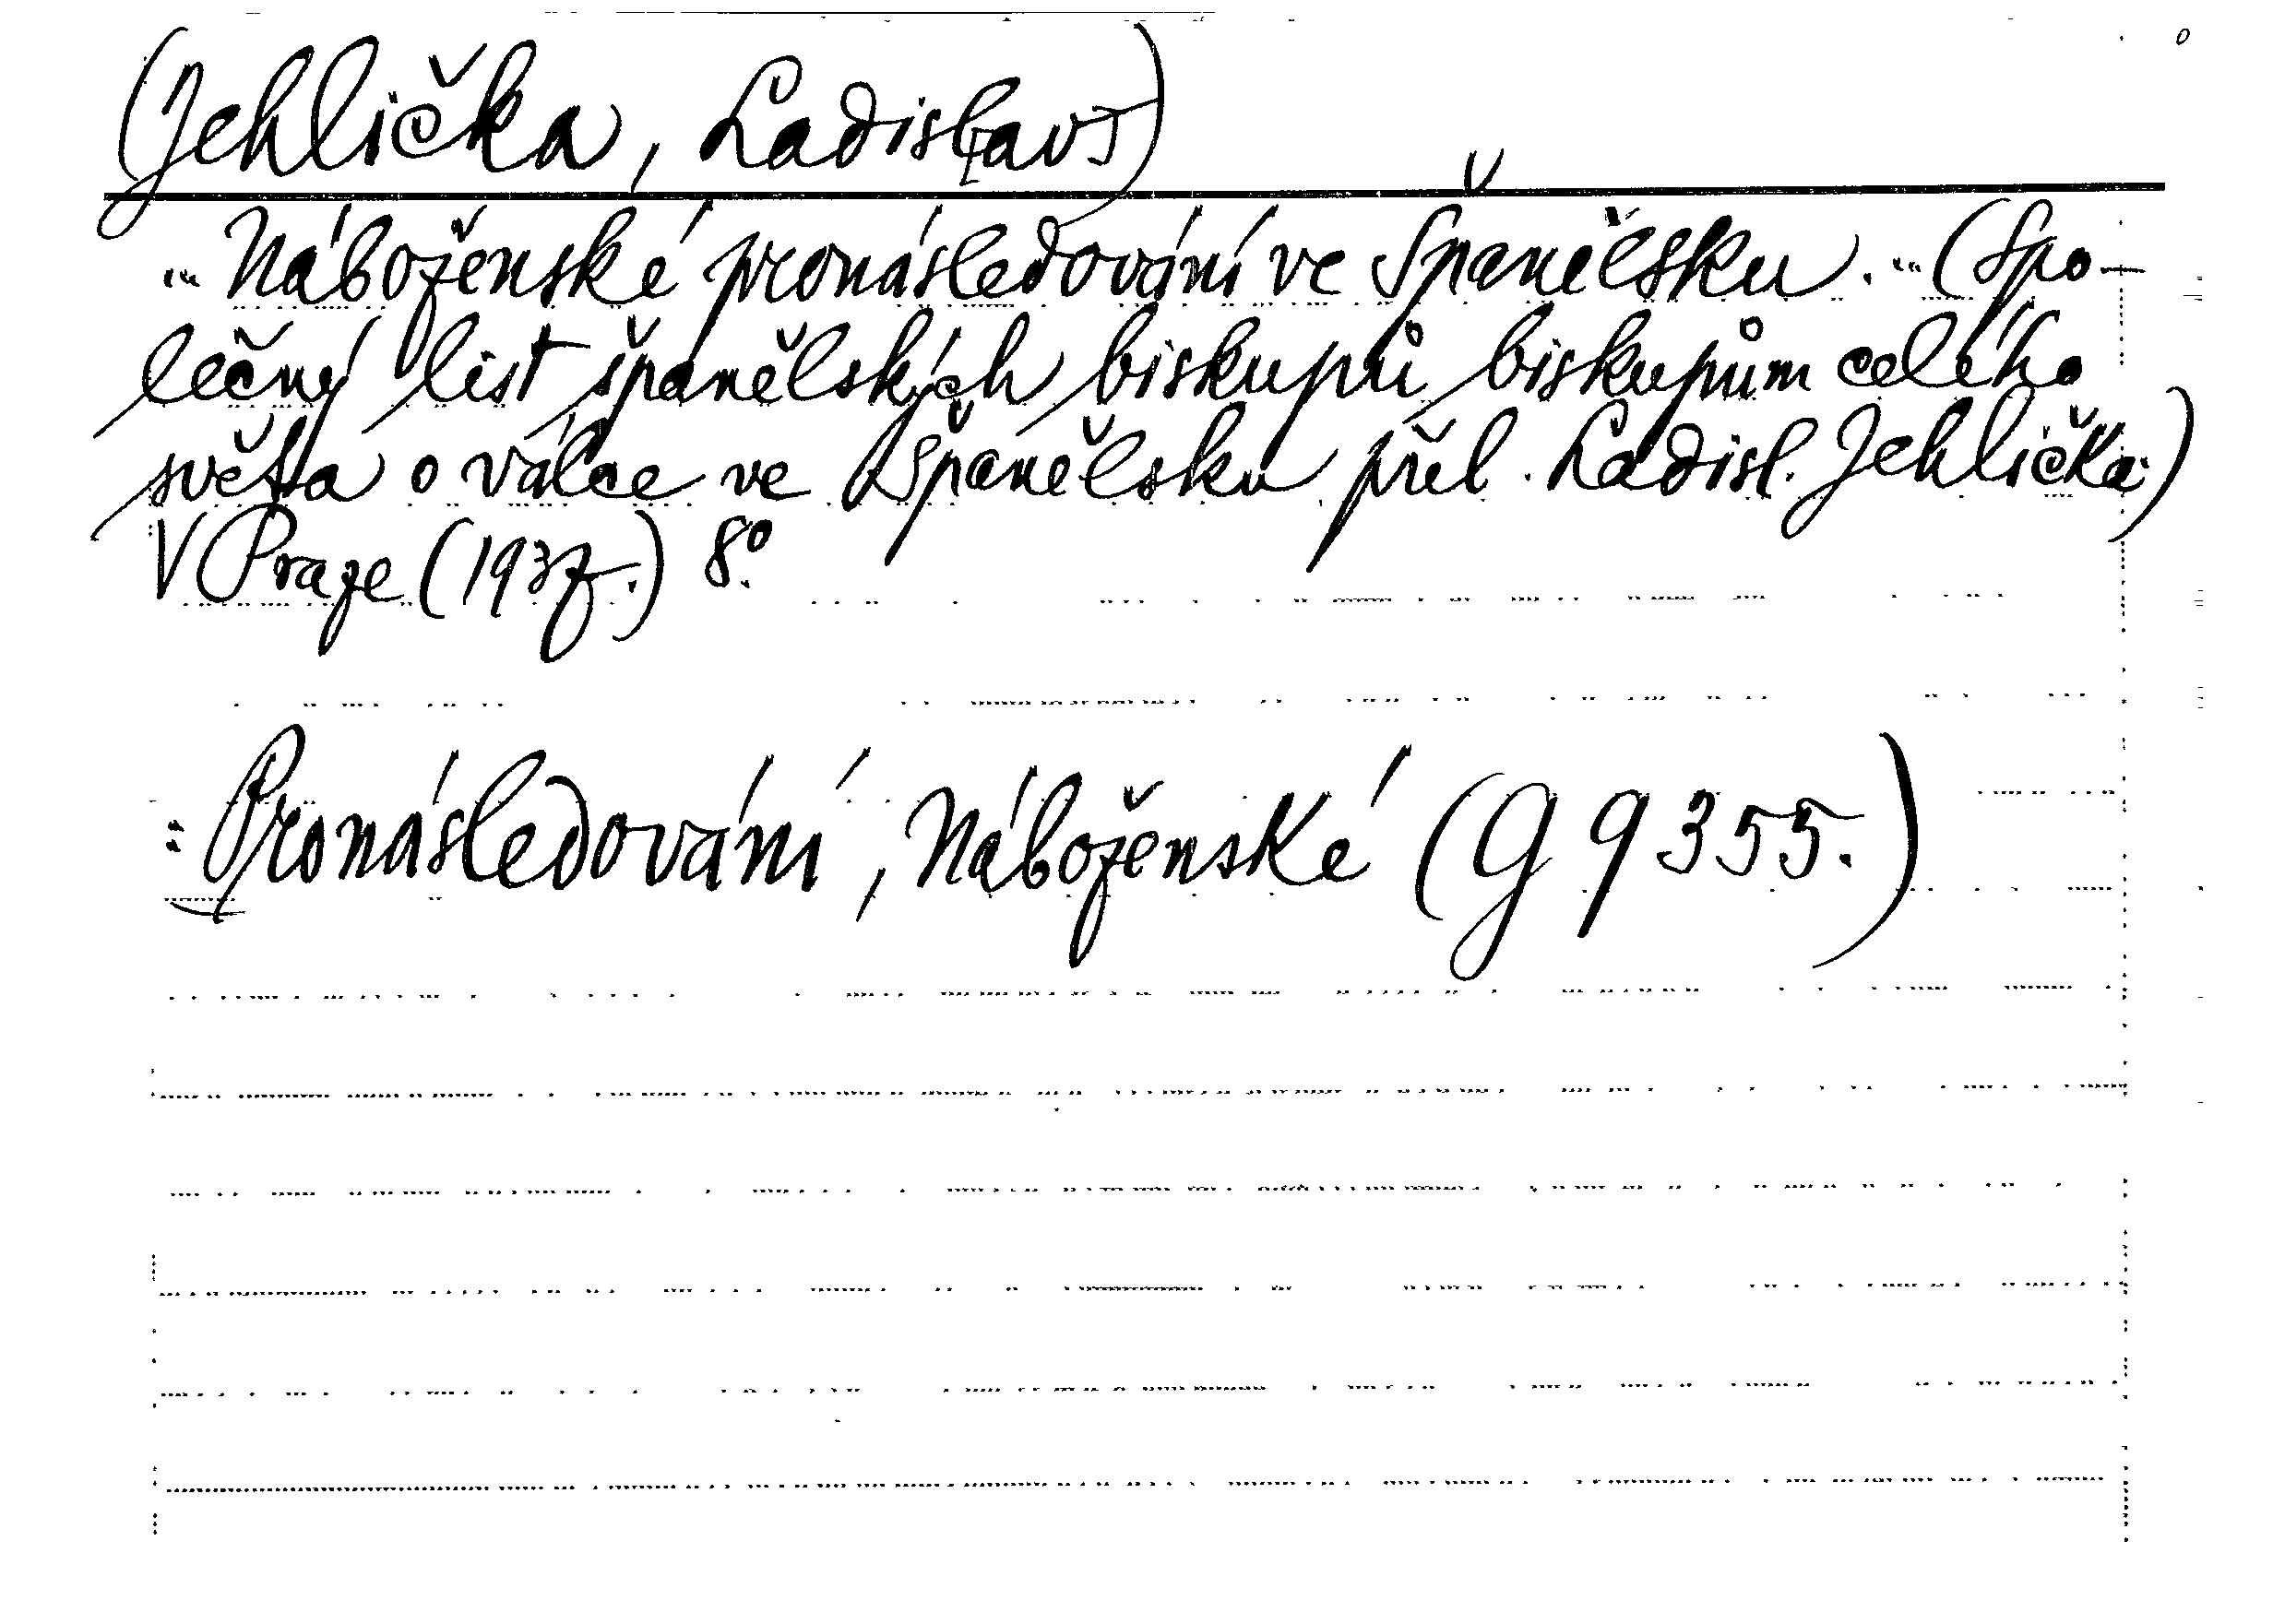 (Jehlička, Ladisl[av])
"Náboženské pronásledování ve Španělsku." (Spo-
lečný list španělských biskupů biskupům celého
světa o válce ve Španělsku přel. Ladisl. Jehlička.)
V Praze (1937.) 8°.
: Pronásledování, Náboženské (G 9355.)